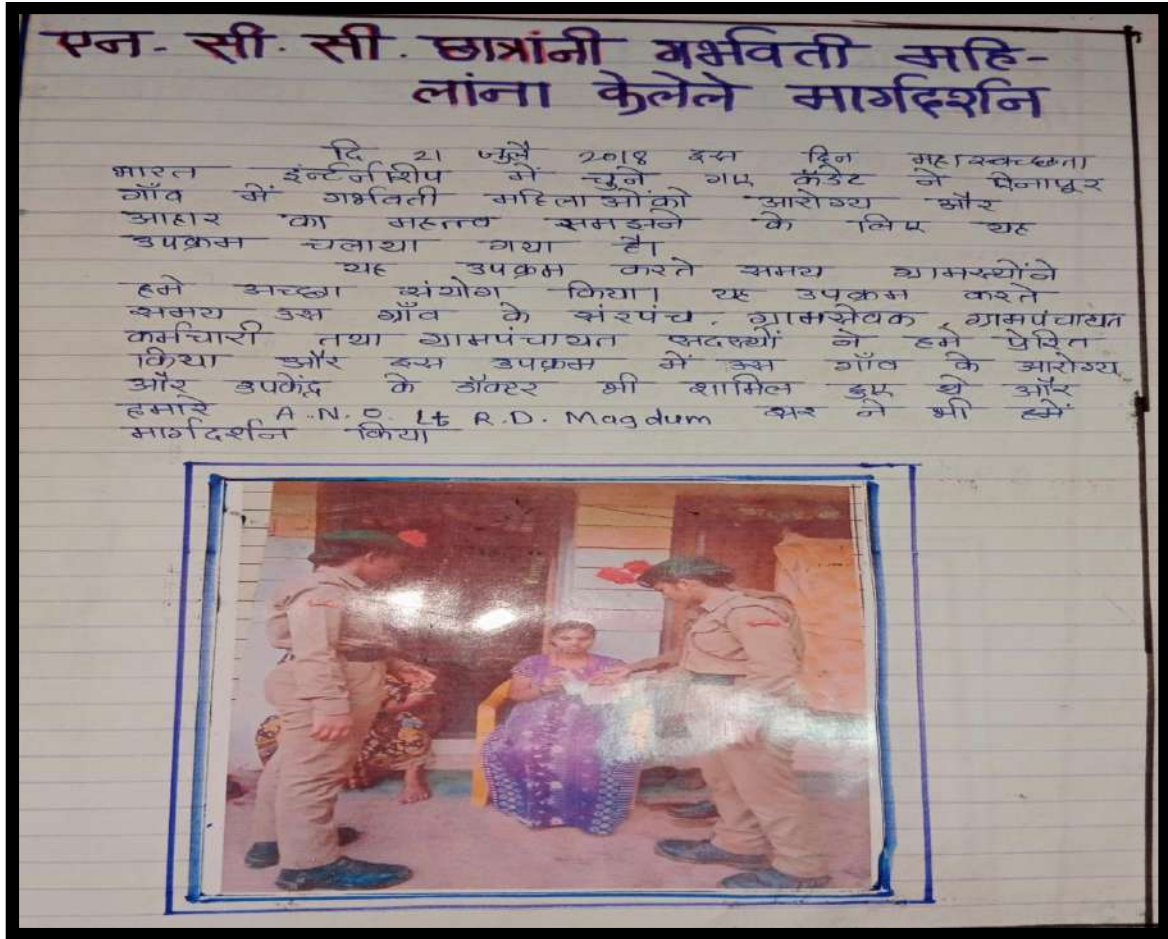 एन. सी. सी. छात्रांनी गर्भवती महि-
लांना केलेले मार्गदर्शन
दि 21 जुलै 2018 इस दिन महास्वच्छता
भारत इंन्टर्नशिप में चुने गए कॅडेट ने ऐनापूर
गाँव में गर्भवती महिलाओंको आरोग्य और
आहार का महत्त्व समझने के लिए यह
उपक्रम चलाया गया है।
यह उपक्रम करते समय ग्रामस्योंने
हमे अच्छा संयोग किया। यह उपक्रम करते
समय उस गाँव के संरपंच, ग्रामसेवक, ग्रामपंचायत
कर्मचारी तथा ग्रामपंचायत सदस्यों ने हमे प्रेरित
किया और इस उपक्रम में उस गाँव के आरोग्य
और उपकेंद्र के डॉक्टर भी शामिल हुए थे और
हमारे A.N.O. Lt R.D. Magdum सर ने भी हमें
मार्गदर्शन किया